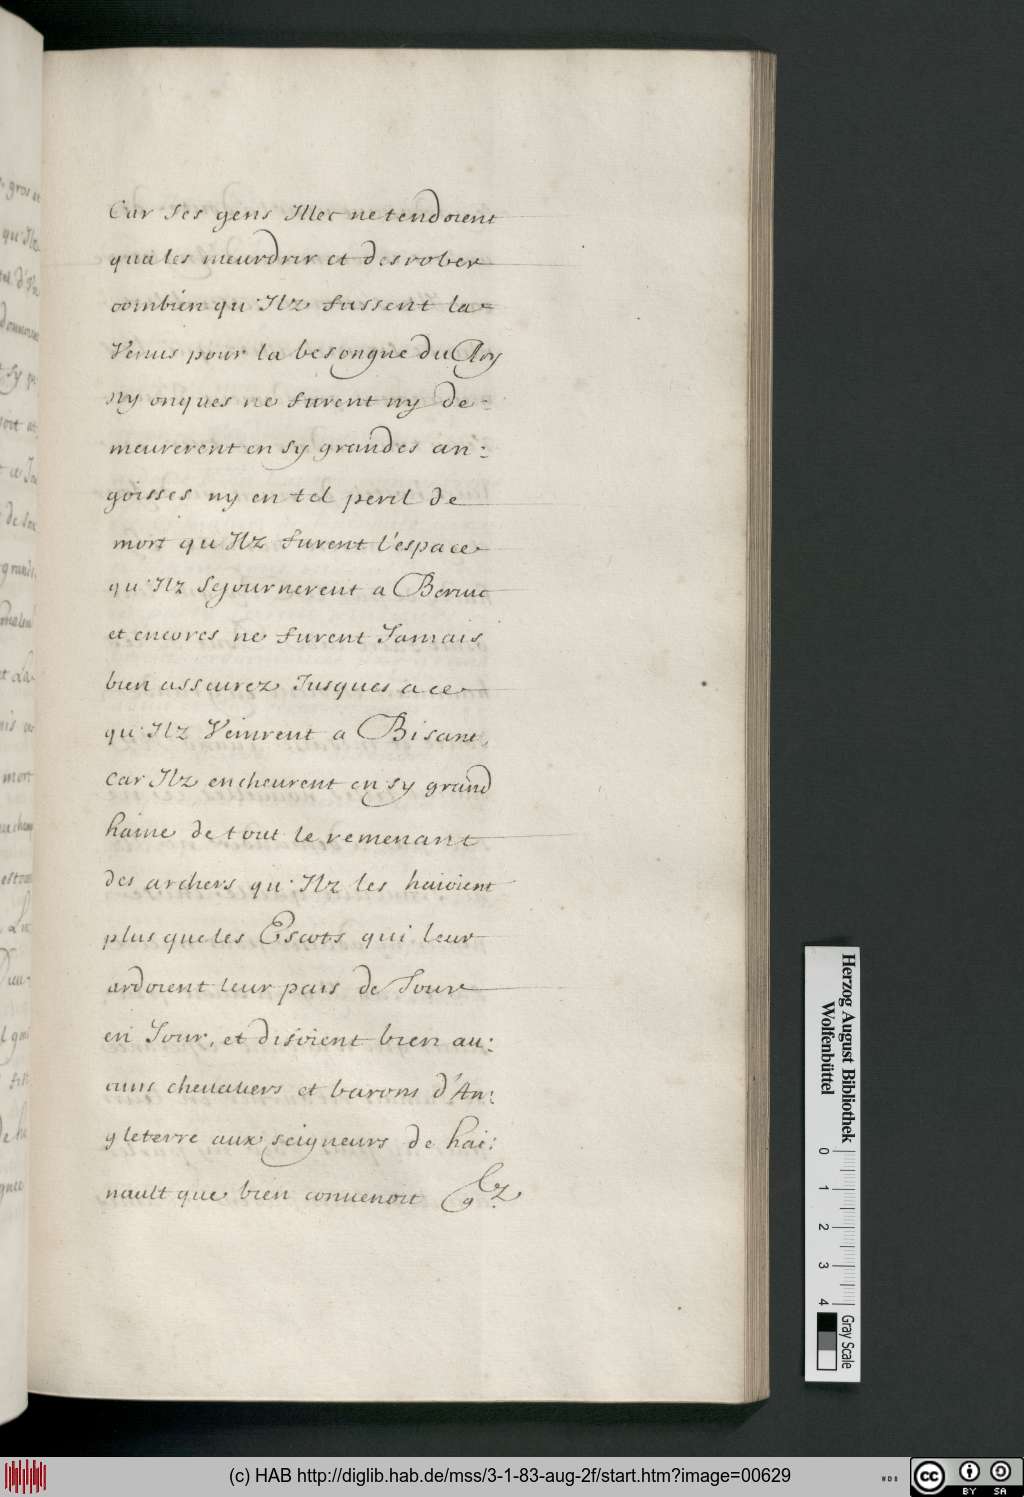 Car Ses gens Illec ne tendoient
qua les meurdrir et desrober
combien qu'Ilz fussent la
Venus pour la besongne du Roy
ny onques ne furent ny de:
meurerent en sy grandes an:
goisses ny en tel peril de
mort qu'Ilz furent l'espace
qu'Ilz Sejournerent a Beruic
et encores ne furent Jamais
bien asseurez Jusques a ce
qu'Ilz Veinrent a Bisant,
Car Ilz encheurent en sy grand
haine de tout le remenant
des archers qu'Ilz les haioient
plus que les Escots qui leur
ardoient leur pais de Jour
en Jour, et disoient bien au:
cuns cheualiers et barons d'An:
gleterre aux seigneurs de hai:
nault que bien conuenoit
Herzog August Bibliothek
Wolfenbüttel
0 1 2 3 4
Gray Scale
(c) HAB http://diglib.hab.de/mss/3-1-83-aug-2f/start.htm?image=00629
cc BY SA